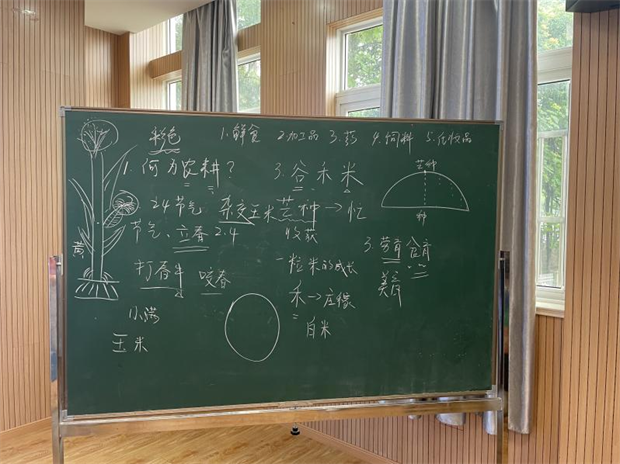 米色 1.鲜食 2.加工品 3.药 4.饲料 5.化妆品
1.何为农耕？
24节气 杂交玉米
节气、立蛋 2.4
打春牛 咬春
小满
玉米
黄
3.谷禾米
芒种→忙
收获
一粒米的成长
禾→庄稼
白米
芒种
种
3.劳育 食育
美育